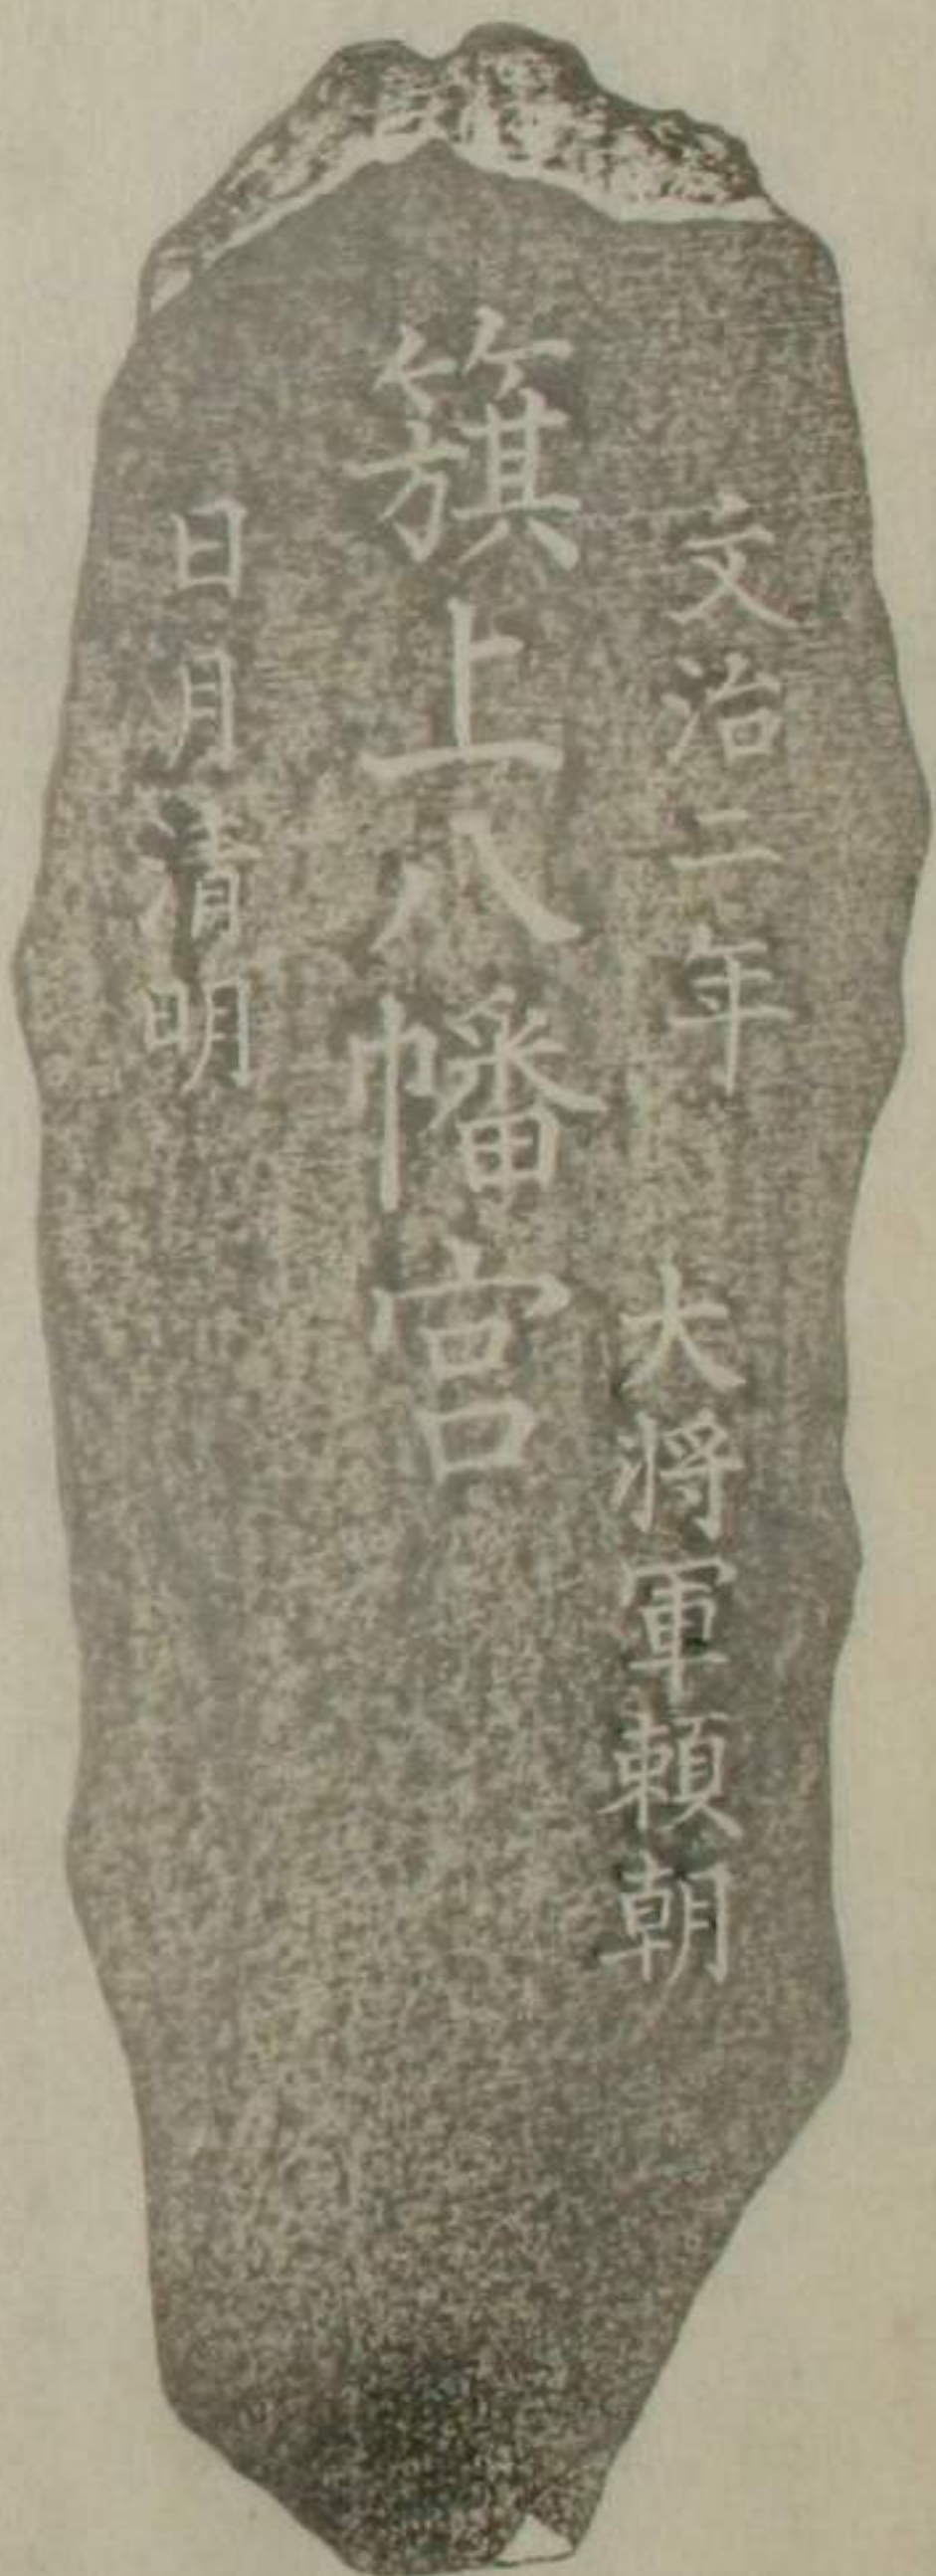 文治二年　大将軍頼朝
籏上八幡宮
日月清明